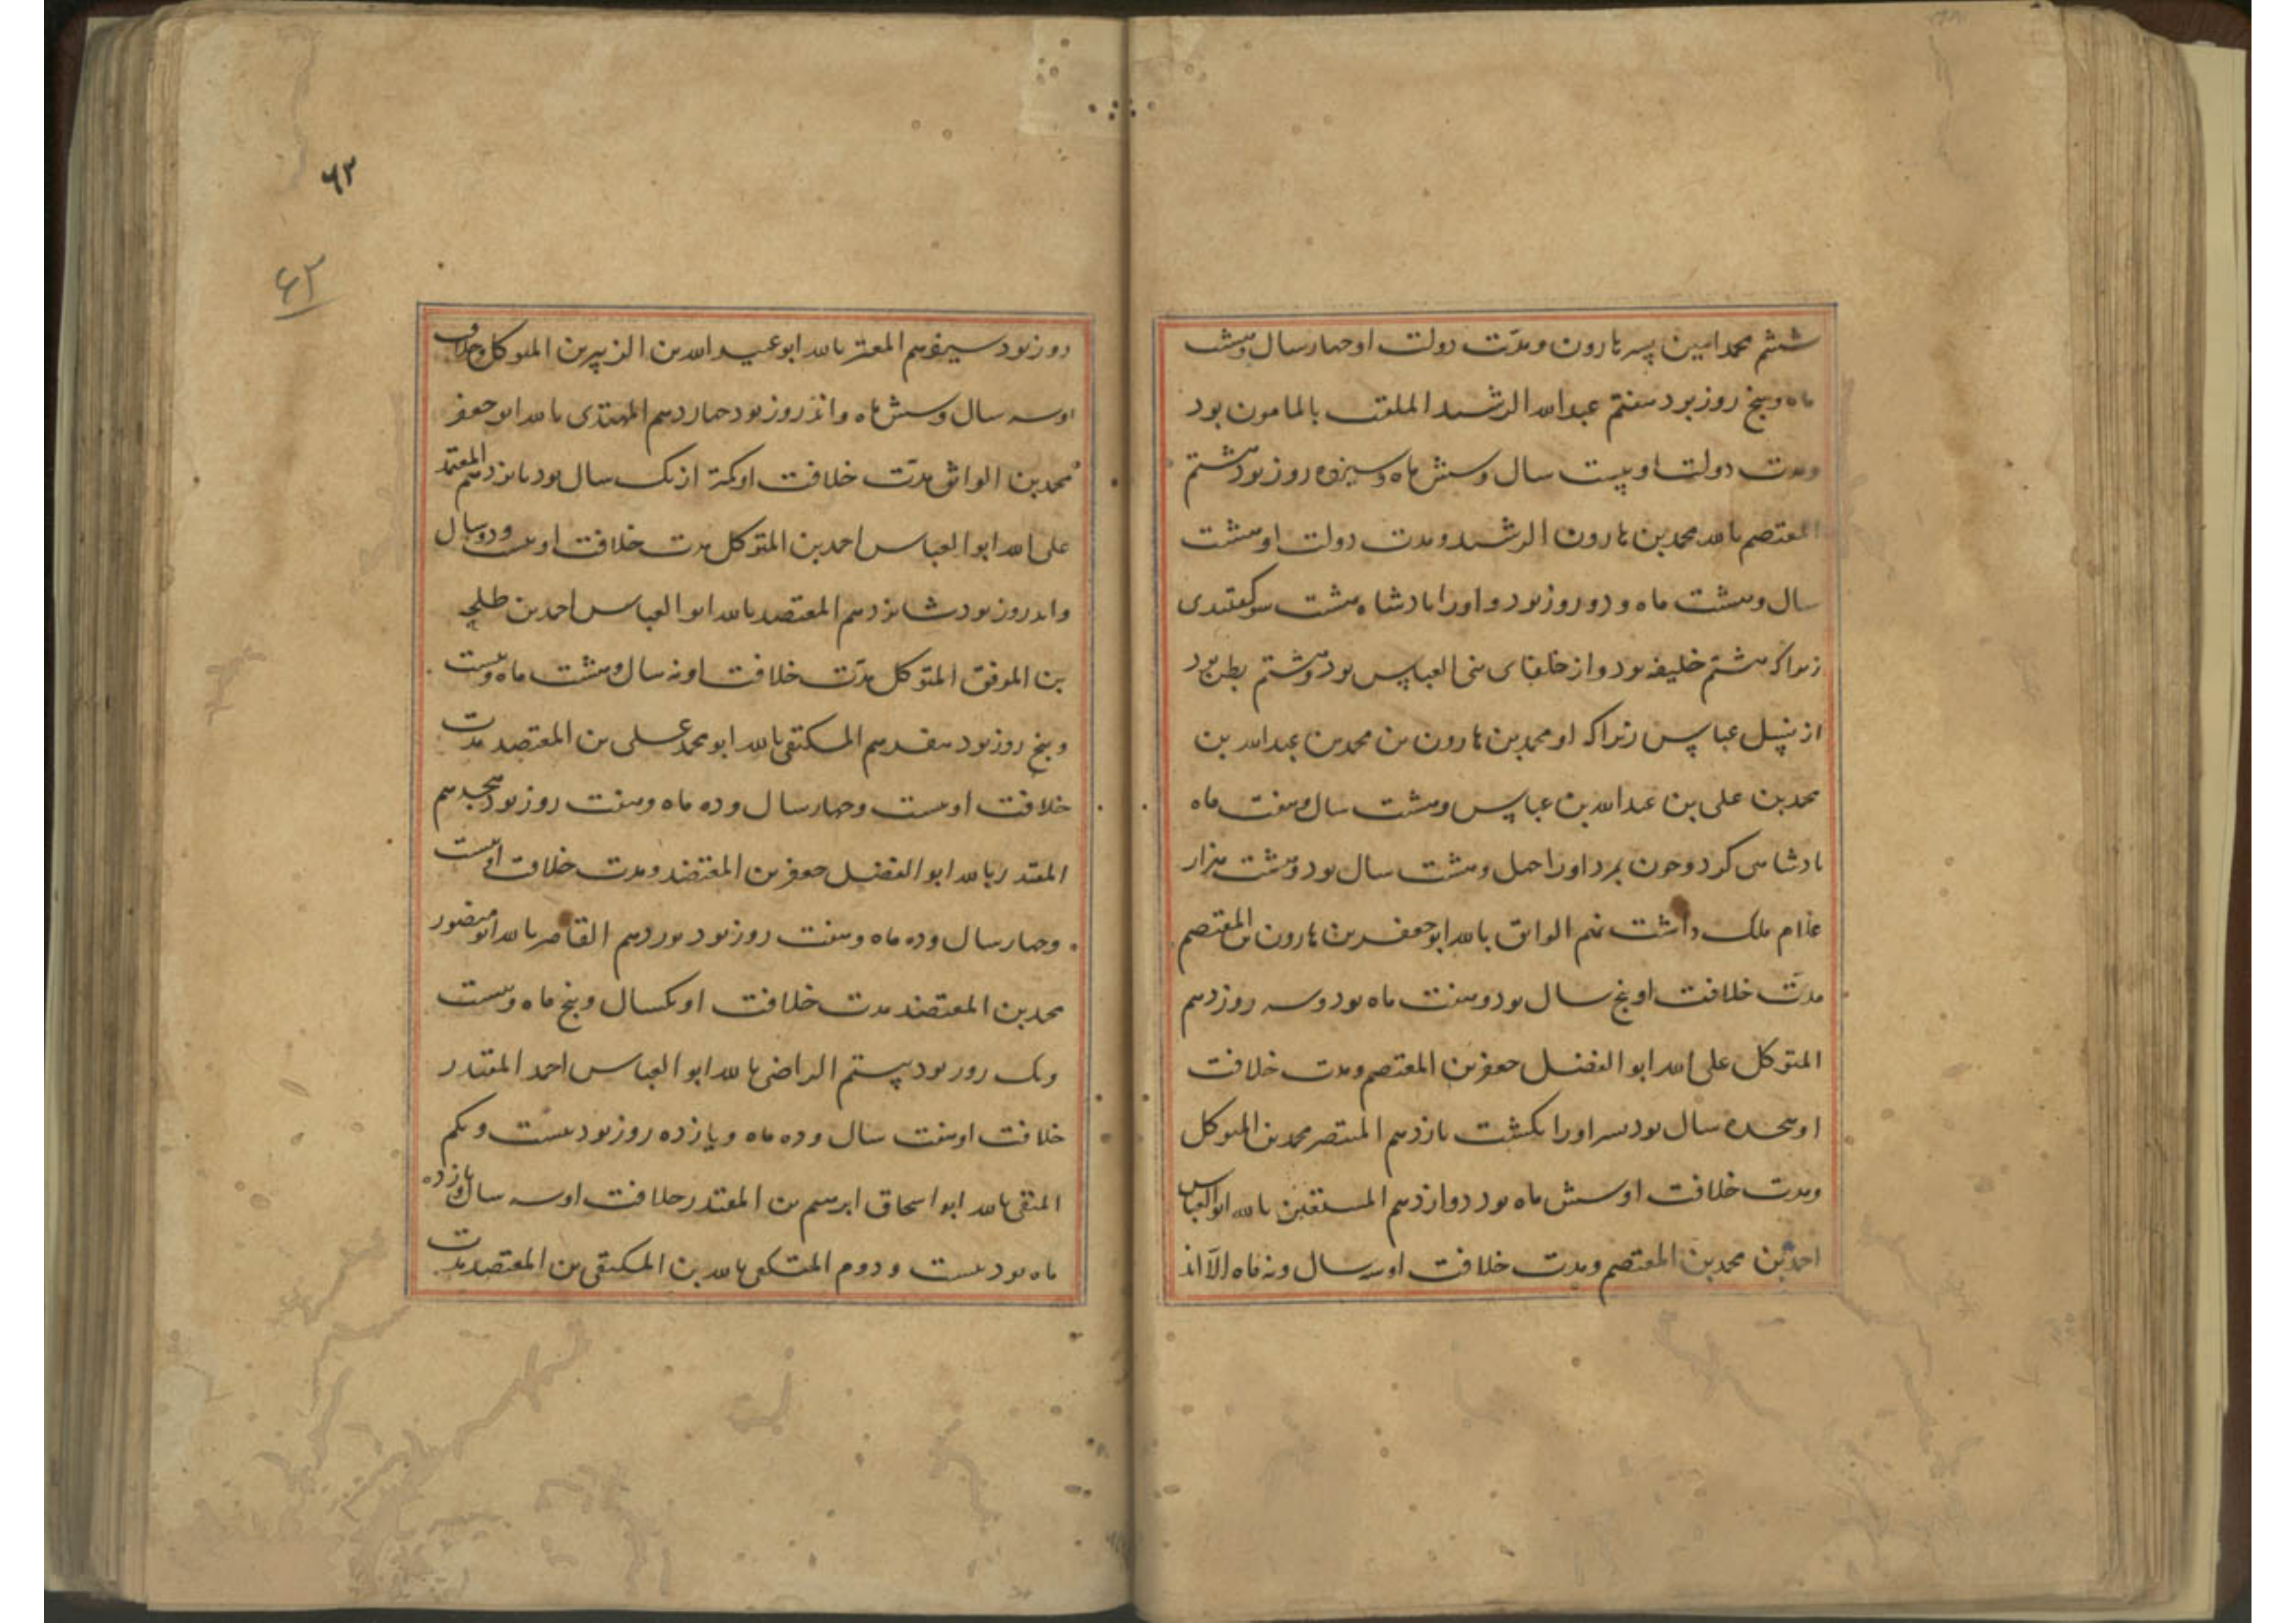 ششم محمد امین پسر هارون و مدّت دولت او چهار سال و هشت
ماه و پنج روز بود هفتم عبدالله الرشید الملقب بالمامون بود
و مدت دولت او بیست سال و شش ماه و سیزده روز بود هشتم
المعتصم بالله محمد بن هارون الرشید و مدت دولت او هشت
سال و هشت ماه و دو روز بود و او را پادشاه هشت سو گفتندی
زیرا که هشتم خلیفه بود و از خلفای بنی العباس بود و هشتم بطن بود
از نسل عباس زیرا که او محمد بن هارون بن محمد بن عبدالله بن
محمد بن علی بن عبدالله بن عباس و هشت سال و هفت ماه
پادشاهی کرد و چون بمرد او را چهل و هشت سال بود و هشت هزار
غلام ملک داشت نهم الواثق بالله ابو جعفر بن هارون بن المعتصم
مدّت خلافت او پنج سال بود و هفت ماه بود و سه روز دهم
المتوکل علی الله ابو الفضل جعفر بن المعتصم و مدت خلافت
او هجده سال بود پسر او را بکشت یازدهم المنتصر محمد بن المتوکل
و مدت خلافت او شش ماه بود دوازدهم المستعین بالله ابو العباس
احمد بن محمد بن المعتصم و مدت خلافت او سه سال و نه ماه الّا اند
۶۲
۶۲
روز بود سیزدهم المعتز بالله ابو عبید الله بن الزبیر بن المتوکل و خلافت
او سه سال و شش ماه و اند روز بود چهاردهم المهتدی بالله ابو جعفر
محمد بن الواثق مدّت خلافت او کمتر از یک سال بود پانزدهم المعتمد
علی الله ابو العباس احمد بن المتوکل مدت خلافت او بیست و دو سال
و اند روز بود شانزدهم المعتضد بالله ابو العباس احمد بن طلحه
بن الموفق المتوکل مدّت خلافت او نه سال و هشت ماه و بیست
و پنج روز بود هفدهم المکتفی بالله ابو محمد علی بن المعتصد مدت
خلافت او بیست و چهار سال و ده ماه و هفت روز بود هجدهم
المقتدر بالله ابو الفضل جعفر بن المعتضد و مدت خلافت او بیست
و چهار سال و ده ماه و هفت روز بود نوزدهم القاهر بالله ابو منصور
محمد بن المعتضد مدت خلافت او یکسال و پنج ماه و بیست
و یک روز بود بیستم الراضی بالله ابو العباس احمد المقتدر
خلافت او هفت سال و ده ماه و یازده روز بود بیست و یکم
المتقی بالله ابو اسحاق ابرهیم بن المقتدر خلافت او سه سال و یازده
ماه بود بیست و دوم المستکفی بالله بن المکتفی بن المعتصد مدت